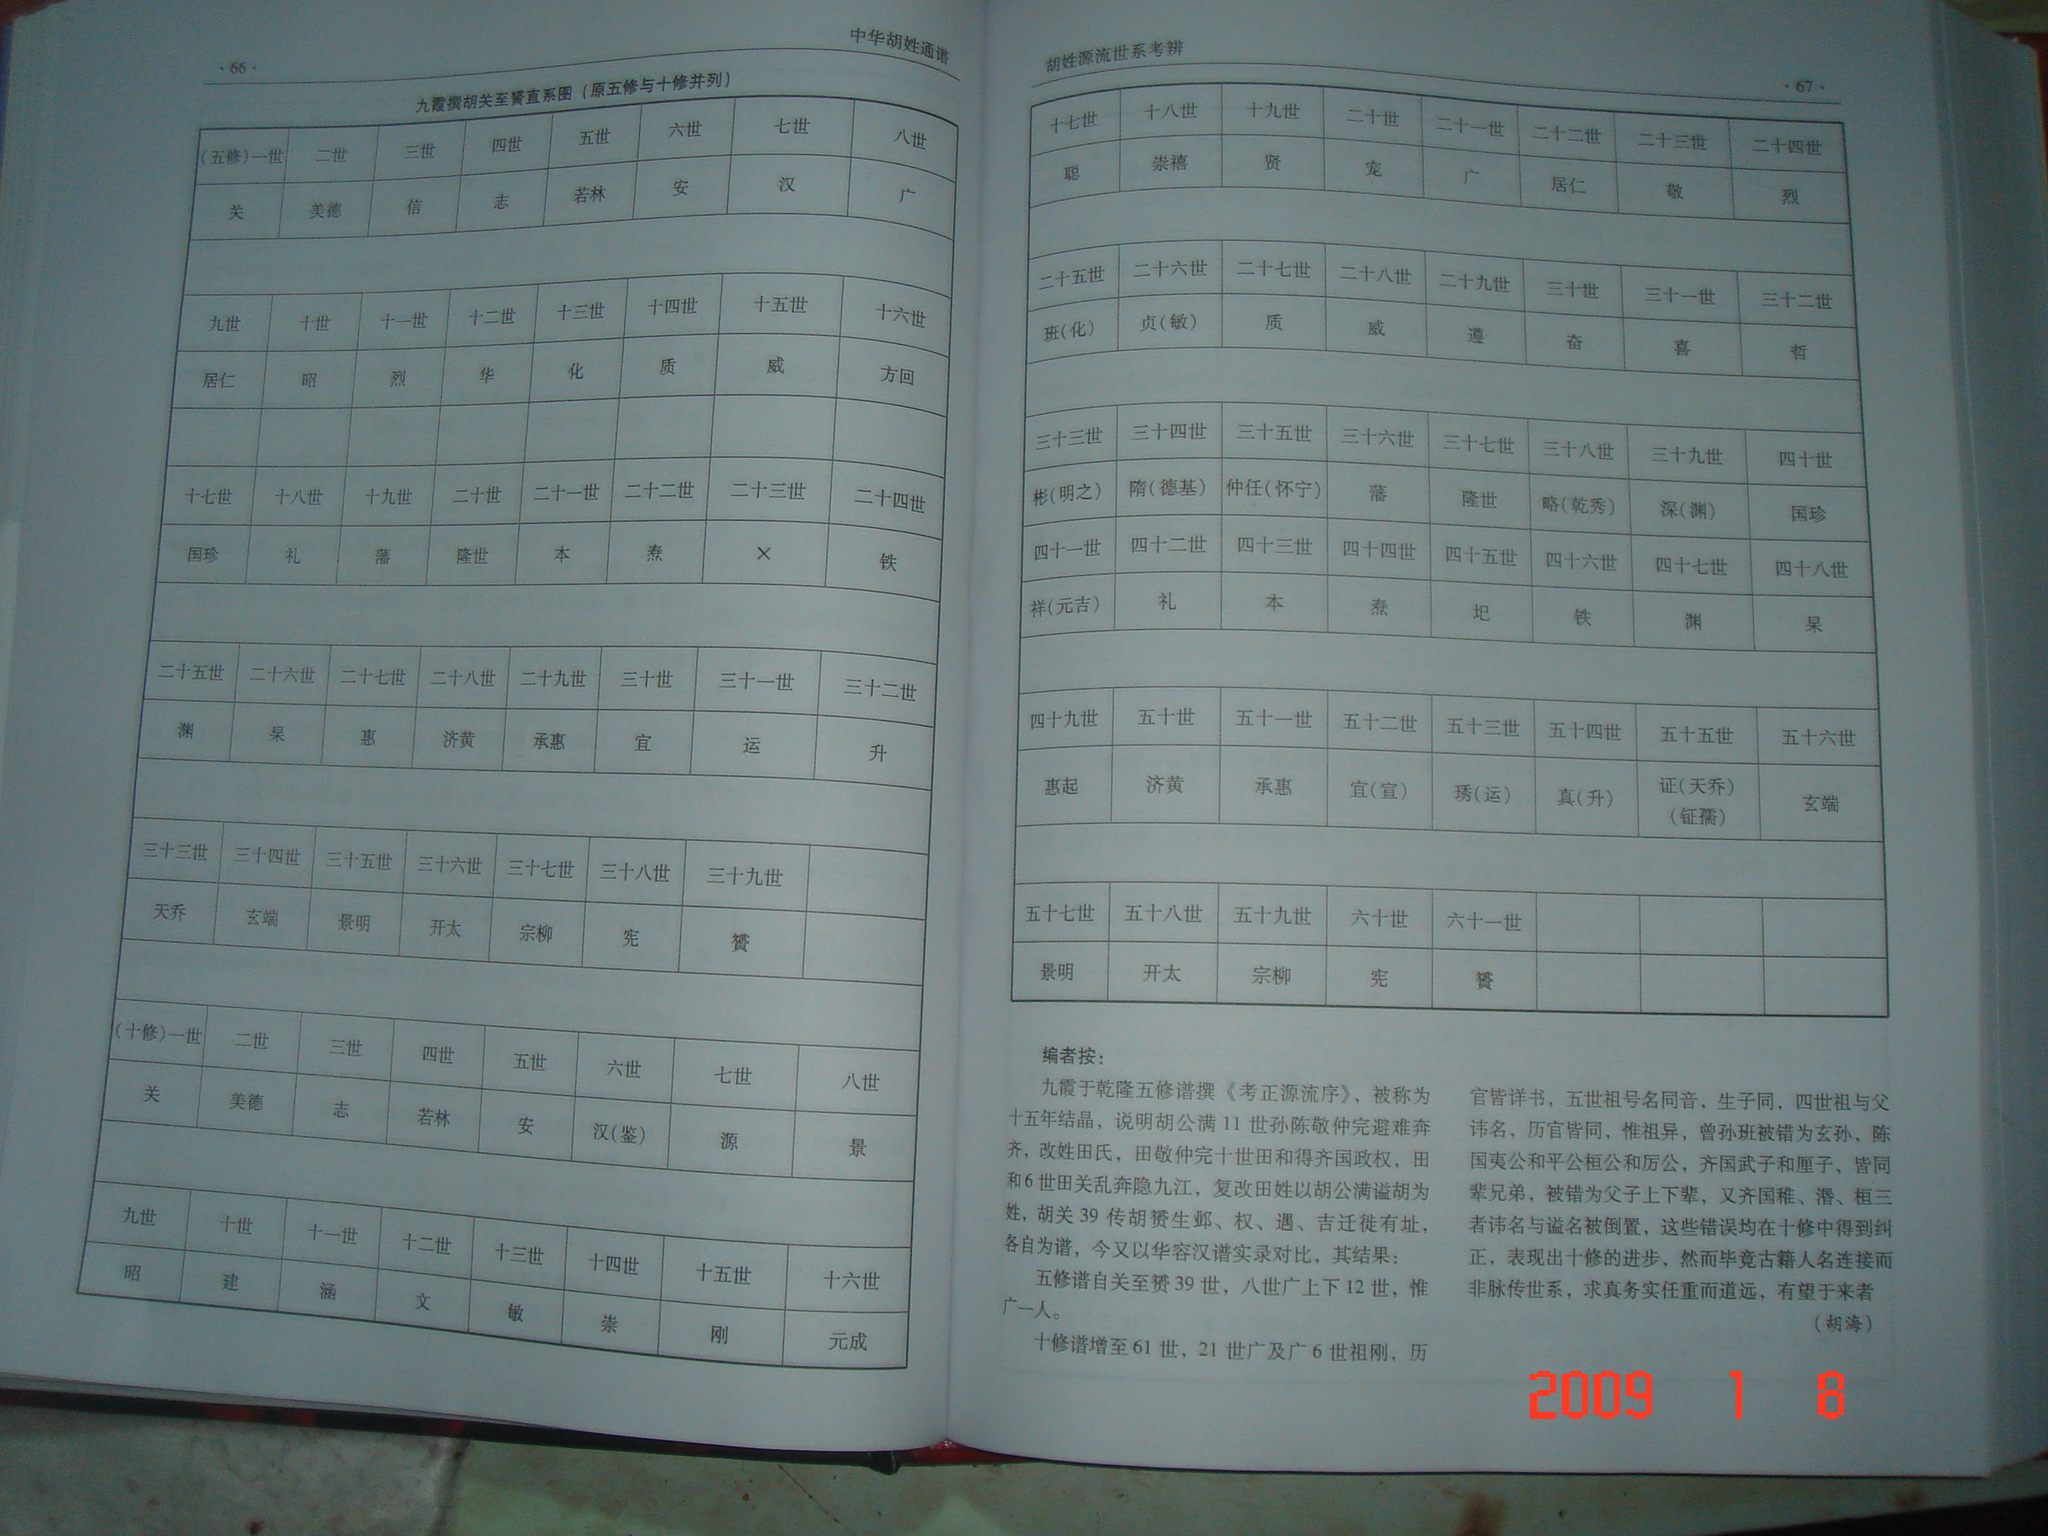 ·66·
中华胡姓通谱
九霞撰胡关至赟直系图（原五修与十修并列）
(五修)一世 二世 三世 四世 五世 六世 七世 八世
关 美德 信 志 若林 安 汉 广
九世 十世 十一世 十二世 十三世 十四世 十五世 十六世
居仁 昭 烈 华 化 质 威 方回
十七世 十八世 十九世 二十世 二十一世 二十二世 二十三世 二十四世
国珍 礼 藩 隆世 本 焘 × 铁
二十五世 二十六世 二十七世 二十八世 二十九世 三十世 三十一世 三十二世
渊 杲 惠 济黄 承惠 宜 运 升
三十三世 三十四世 三十五世 三十六世 三十七世 三十八世 三十九世
天乔 玄端 景明 开太 宗柳 宪 赟
(十修)一世 二世 三世 四世 五世 六世 七世 八世
关 美德 志 若林 安 汉(鉴) 源 景
九世 十世 十一世 十二世 十三世 十四世 十五世 十六世
昭 建 涵 文 敏 崇 刚 元成
胡姓源流世系考辨
·67·
十七世 十八世 十九世 二十世 二十一世 二十二世 二十三世 二十四世
聪 崇禧 贤 宠 广 居仁 敬 烈
二十五世 二十六世 二十七世 二十八世 二十九世 三十世 三十一世 三十二世
班(化) 贞(敏) 质 威 遵 奋 喜 哲
三十三世 三十四世 三十五世 三十六世 三十七世 三十八世 三十九世 四十世
彬(明之) 隋(德基) 仲任(怀宁) 藩 隆世 略(乾秀) 深(渊) 国珍
四十一世 四十二世 四十三世 四十四世 四十五世 四十六世 四十七世 四十八世
祥(元吉) 礼 本 焘 圯 铁 渊 杲
四十九世 五十世 五十一世 五十二世 五十三世 五十四世 五十五世 五十六世
惠起 济黄 承惠 宜(宣) 琇(运) 真(升) 证(天乔) 玄端
(钲孺)
五十七世 五十八世 五十九世 六十世 六十一世
景明 开太 宗柳 宪 赟
编者按：
九霞于乾隆五修谱撰《考正源流序》，被称为
十五年结晶，说明胡公满11世孙陈敬仲完避难奔
齐，改姓田氏，田敬仲完十世田和得齐国政权，田
和6世田关乱奔隐九江，复改田姓以胡公满谥胡为
姓，胡关39传胡赟生邺、权、遇、吉迁徙有址，
各自为谱，今又以华容汉谱实录对比，其结果：
五修谱自关至赟39世，八世广上下12世，惟
广一人。
十修谱增至61世，21世广及广6世祖刚，历
官皆详书，五世祖号名同音，生子同，四世祖与父
讳名，历官皆同，惟祖异，曾孙班被错为玄孙，陈
国夷公和平公桓公和厉公，齐国武子和厘子，皆同
辈兄弟，被错为父子上下辈，又齐国稚、湣、桓三
者讳名与谥名被倒置，这些错误均在十修中得到纠
正，表现出十修的进步，然而毕竟古籍人名连接而
非脉传世系，求真务实任重而道远，有望于来者
（胡海）
2009 1 8